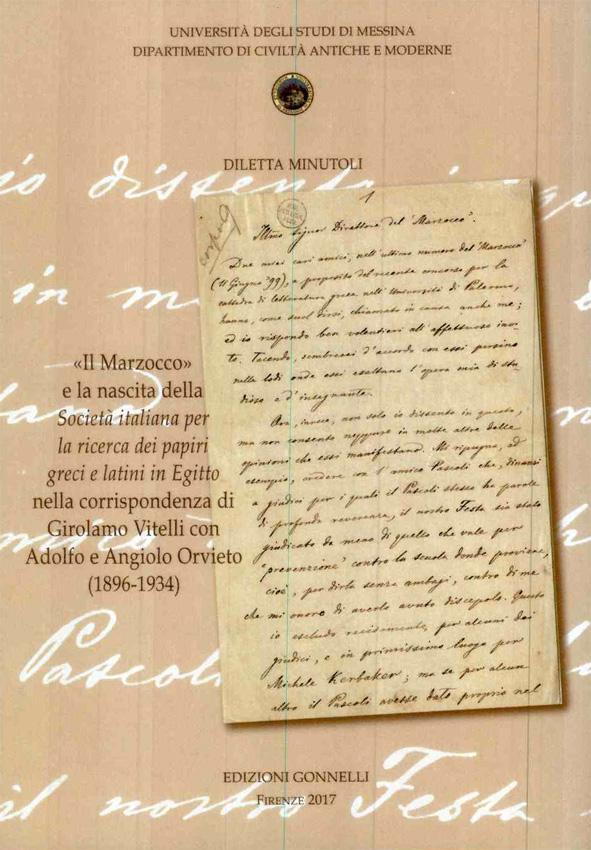 UNIVERSITÀ DEGLI STUDI DI MESSINA
DIPARTIMENTO DI CIVILTÀ ANTICHE E MODERNE
DILETTA MINUTOLI
«Il Marzocco»
e la nascita della
Società italiana per
la ricerca dei papiri
greci e latini in Egitto
nella corrispondenza di
Girolamo Vitelli con
Adolfo e Angiolo Orvieto
(1896-1934)
1
Illmo Signor Direttore del "Marzocco".
Due miei cari amici, nell'ultimo numero del "Marzocco"
(11 Giugno '99), a proposito del recente concorso per la
cattedra di letteratura greca nell'Università di Palermo,
hanno, come suol dirsi, chiamato in causa anche me;
ed io rispondo ben volentieri all'affettuoso invi-
to. Tacendo, sembrerei d'accordo con essi persino
nelle lodi onde essi esaltano l'opera mia di stu-
dioso e d'insegnante.
Ora, invece, non solo io dissento in questo,
ma non consento neppure in molte altre delle
opinioni che essi manifestano. Mi ripugna, ad
esempio, credere con l'amico Pascoli che, dinanzi
a giudici per i quali il Pascoli stesso ha parole
di profonda reverenza, il nostro Festa sia stato
giudicato da meno di quello che vale per
"prevenzione" contro la scuola donde proviene,
cioè, per dirla senza ambagi, contro di me
che mi onoro di averlo avuto discepolo. Questo
io escludo recisamente per alcuni dei
giudici, e in primissimo luogo per
Michele Kerbaker; ma se per alcun
altro il Pascoli avesse dato proprio nel
io dissento in
in m
Pascoli
il nostro Festa
EDIZIONI GONNELLI
FIRENZE 2017